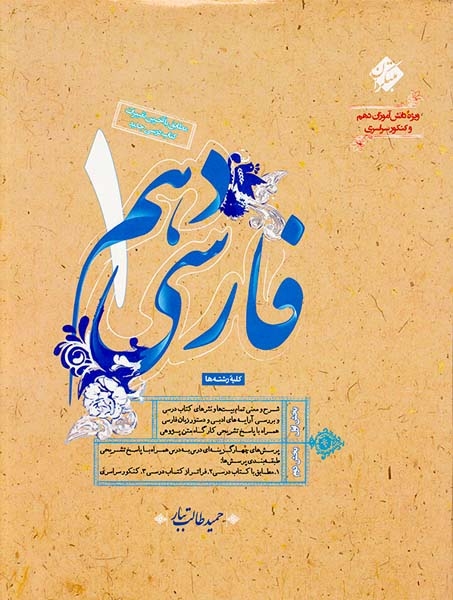 مبتکران
ویژه دانش‌آموزان دهم
و کنکور سراسری
مطابق با آخرین تغییرات
کتاب درسی جدید
فارسی دهم ۱
کلیهٔ رشته‌ها
بخش اول
شرح و معنی تمام بیت‌ها و نثرهای کتاب درسی
و بررسی آرایه‌های ادبی و دستور زبان فارسی
همراه با پاسخ تشریحی کارگاه متن پژوهی
بخش دوم
پرسش‌های چهارگزینه‌ای درس به درس همراه با پاسخ تشریحی
طبقه‌بندی پرسش‌ها:
۱. مطابق با کتاب درسی ۲. فراتر از کتاب درسی ۳. کنکور سراسری
حمید طالب تبار